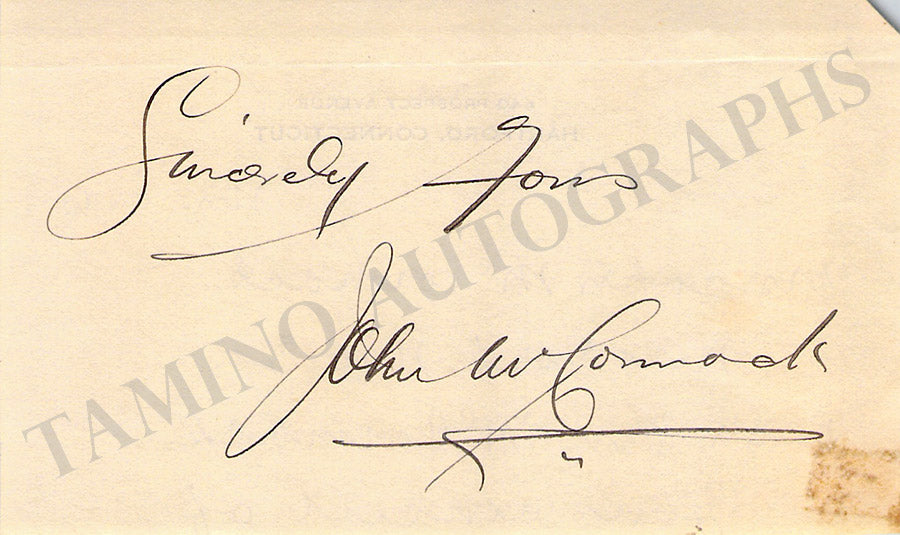 Sincerely Yours
John McCormack
TAMINO AUTOGRAPHS
PROSPECT AVENUE
HARTFORD, CONNECTICUT